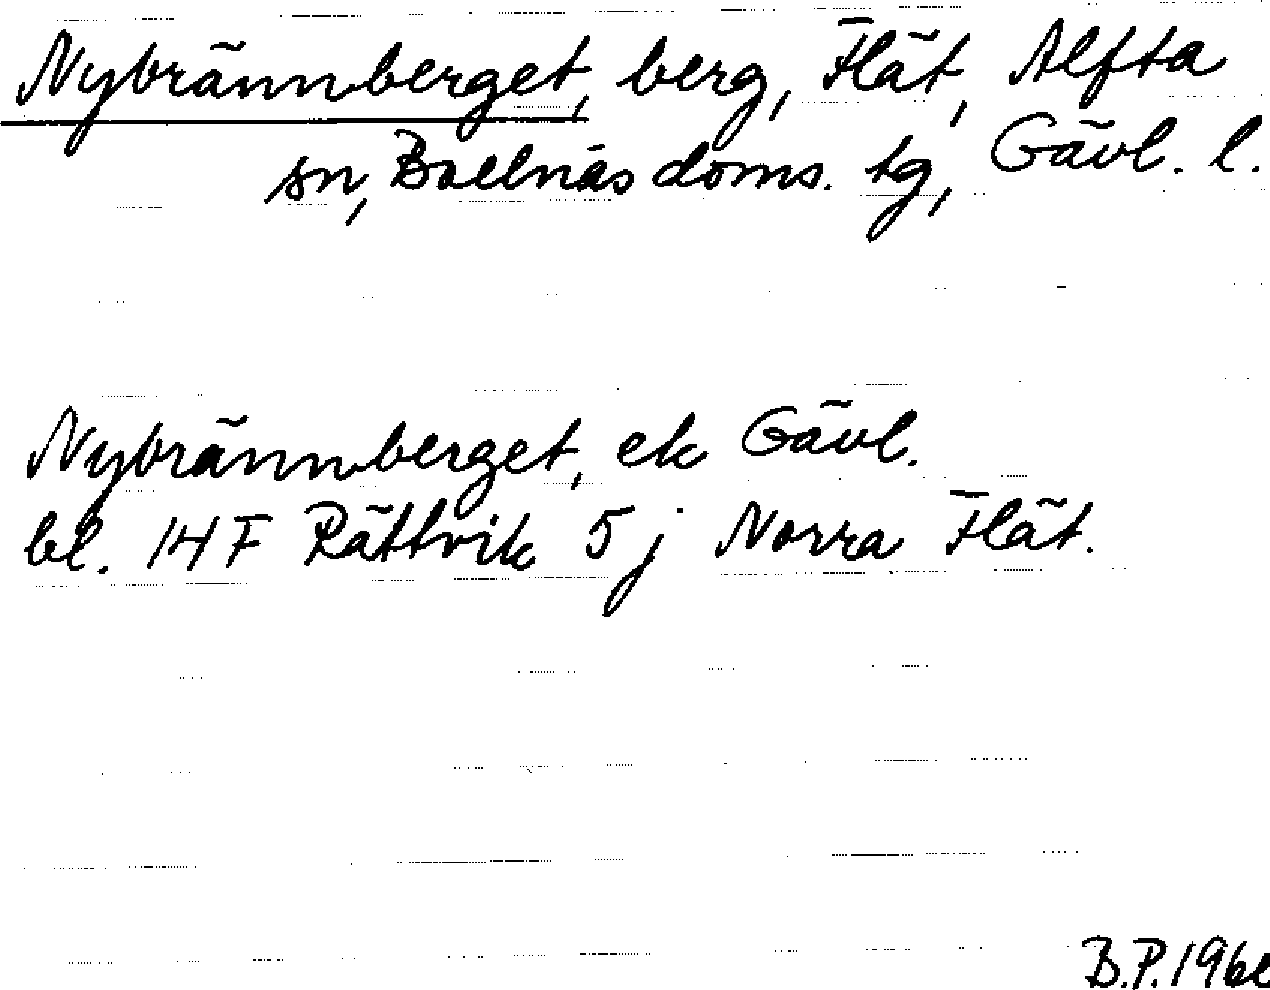 Nybrännberget, berg, Flät, Alfta
sn, Bollnäs doms. tg, Gävl. l.
Nybrännberget, ek Gävl.
bl. 14 F Rättvik 5 j Norra Flät.
B.P.